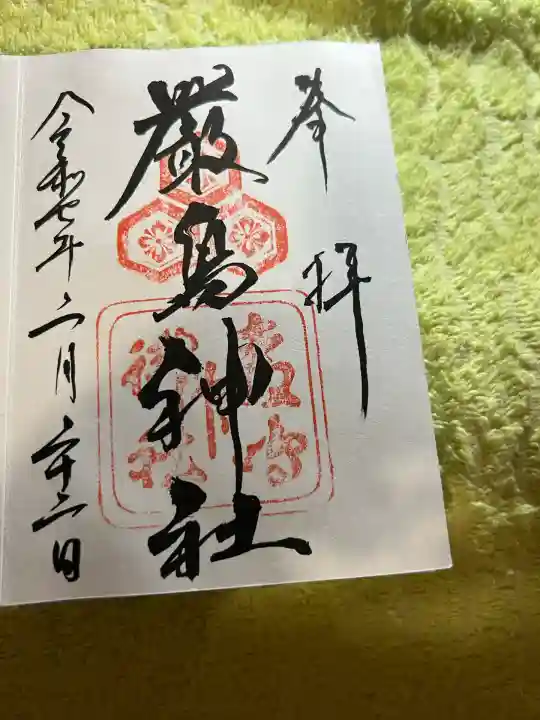 奉拝
厳島神社
令和七年二月二十二日